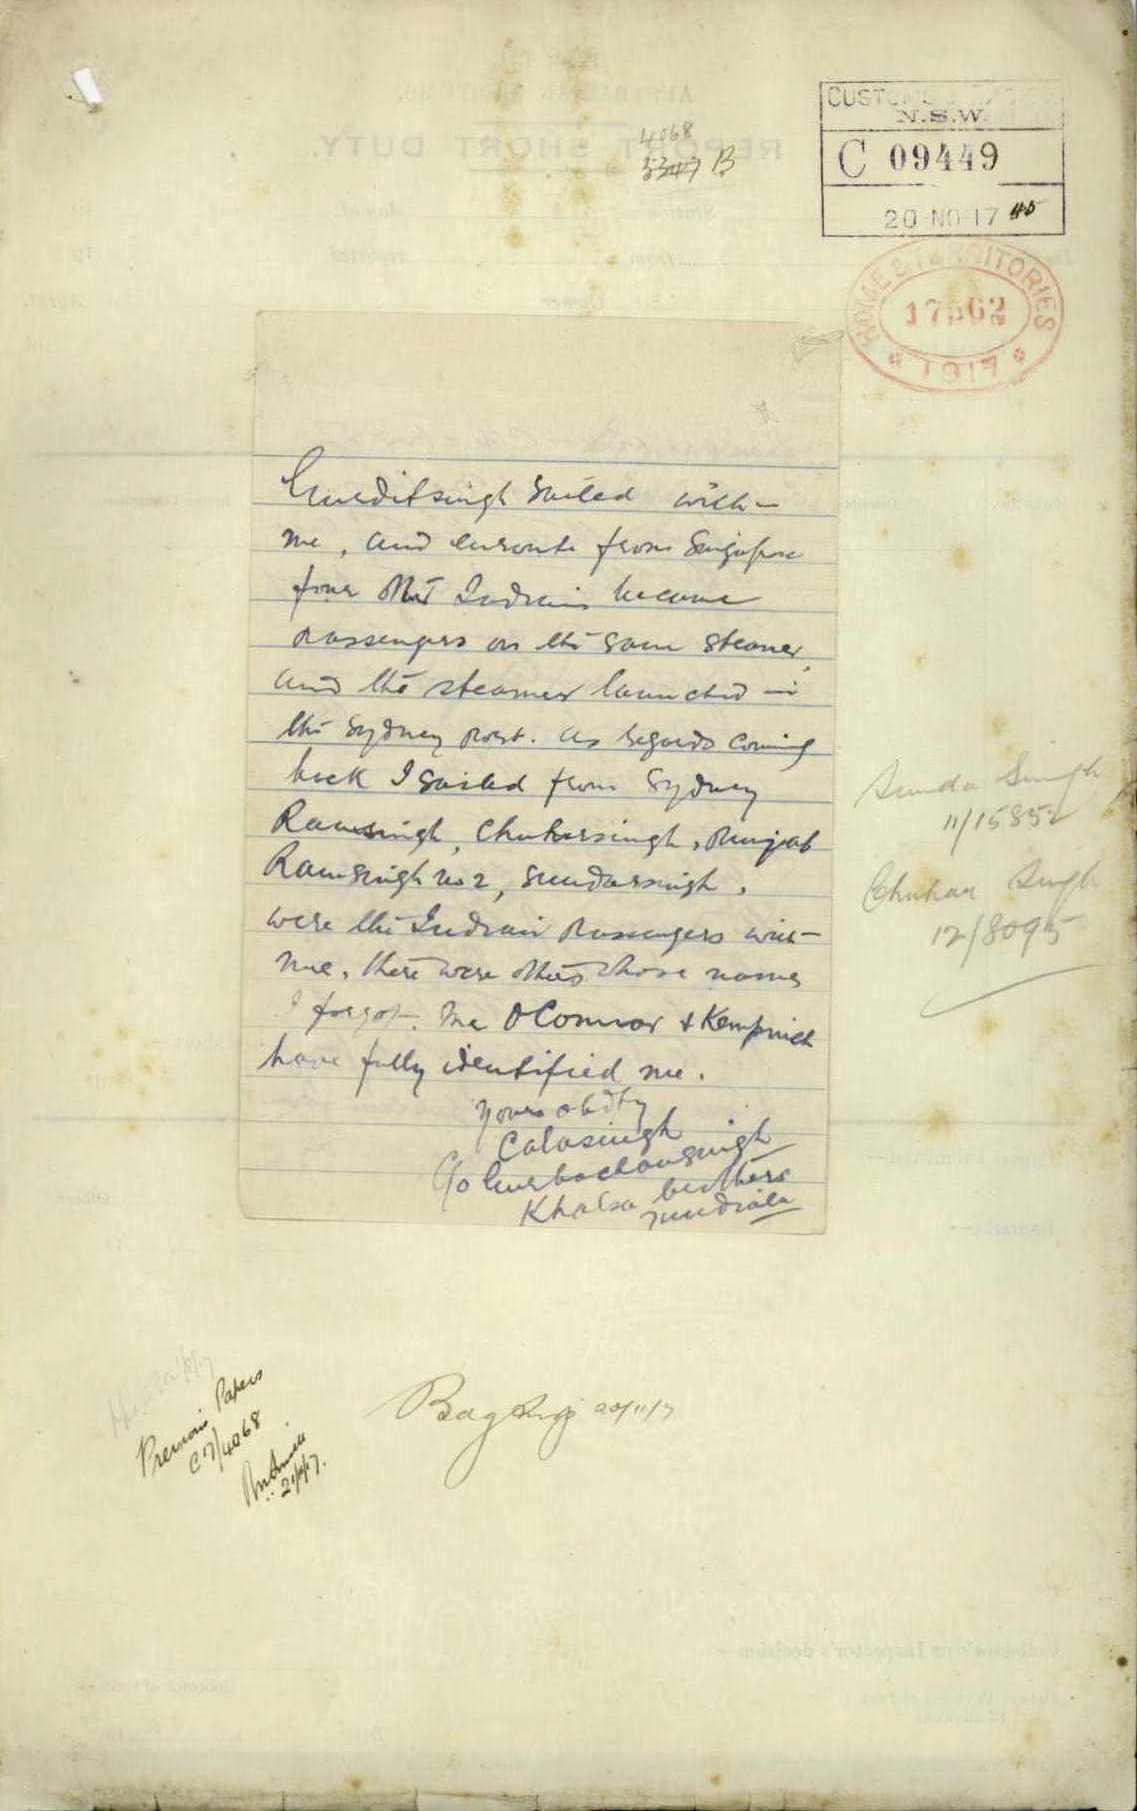 4068
5347 B
CUSTOMS
N.S.W.
C 09449
20 NO 17
HOME & TERRITORIES
17562
1917
REPORT SHORT DUTY.
Gurditsingh sailed with
me, and enroute from Singapore
four other Indians became
passengers on the same steamer,
and the steamer launched in
the Sydney port. As regards coming
back I sailed from Sydney
Ramsingh, Chukersingh, Punjab
Ramsingh no 2, Sundarsingh,
were the Indian passengers with
me, there were others whose names
I forgot. Mr O'Connor & Kempnich
have fully identified me.
Yours obdtly
Calasingh
C/o Gurbachansingh
Khalsa brothers
Jundiala
Sunda Singh
11/15852
Chukar Singh
12/8095
Previous Papers
C17/4068
21/11/17.
20/11/17